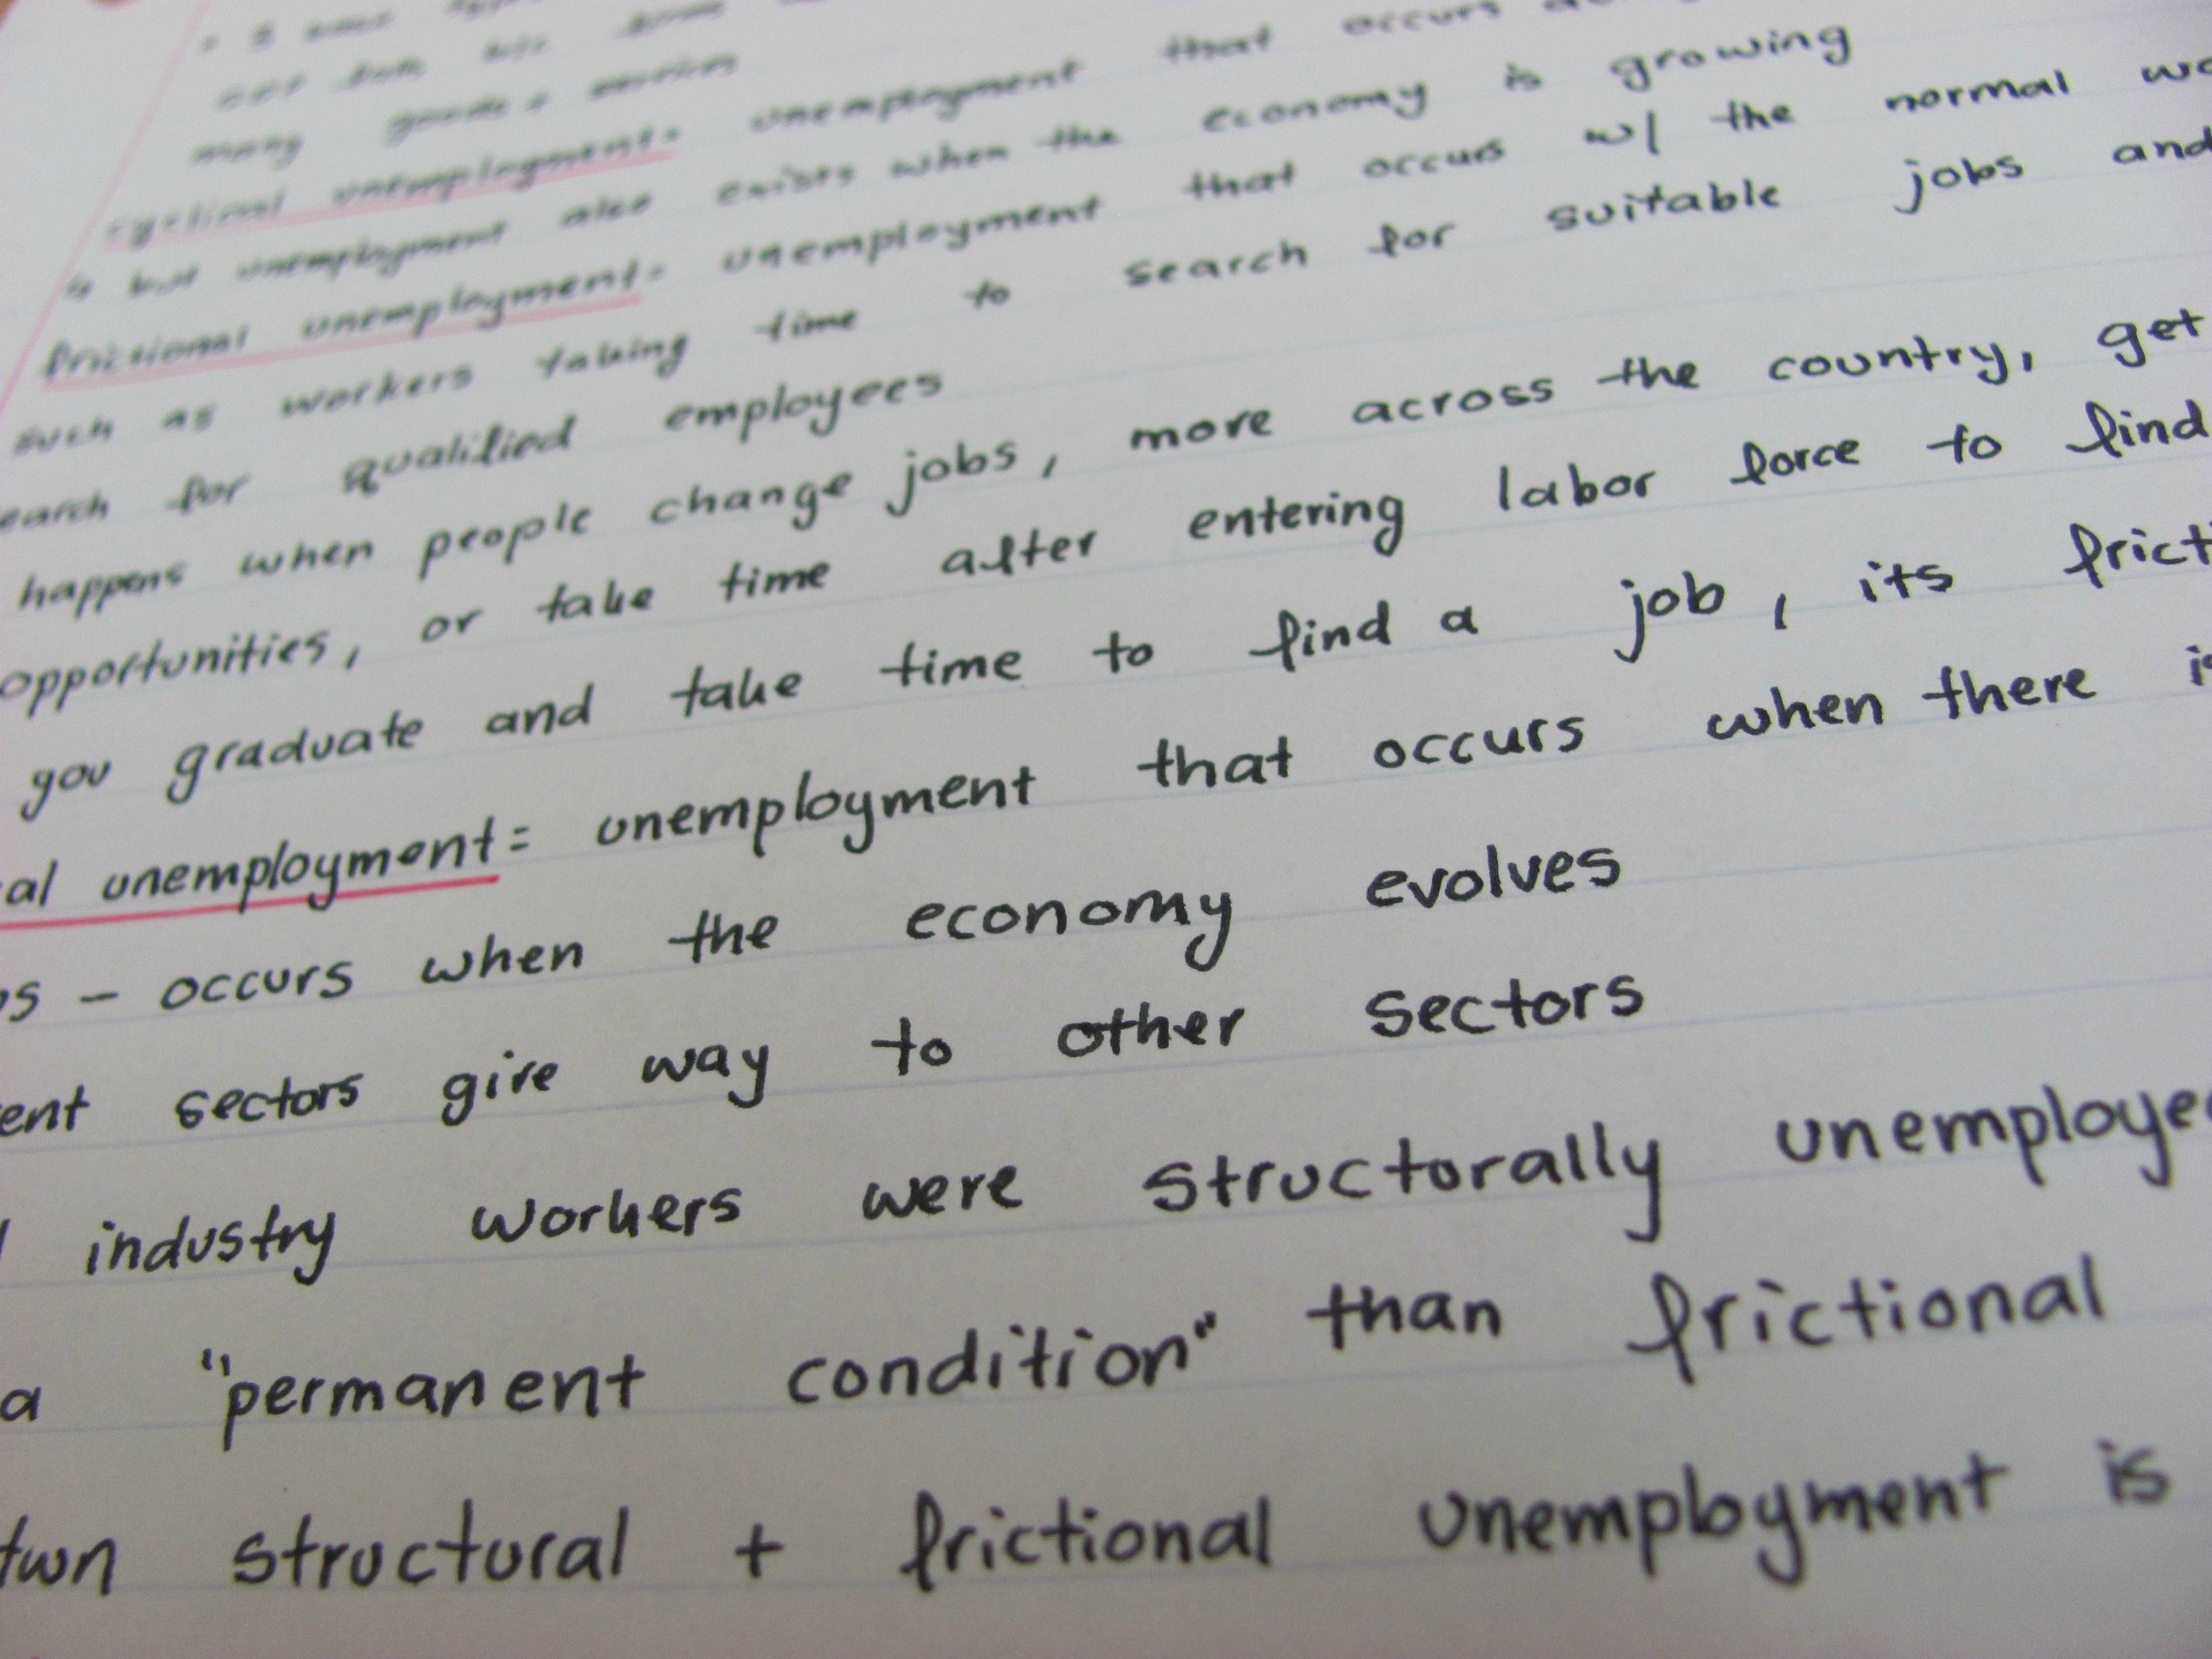 many goods + services
cyclical unemployment = unemployment that occurs
↳ but unemployment also exists when the economy is growing
frictional unemployment = unemployment that occurs w/ the normal
such as workers taking time to search for suitable jobs and
earch for qualified employees
happens when people change jobs, more across the country, get
opportunities, or take time after entering labor force to find
you graduate and take time to find a job, its frict
al unemployment = unemployment that occurs when there is
os - occurs when the economy evolves
ent sectors give way to other sectors
industry workers were structorally unemployed
a "permanent condition" than frictional
twn structural + frictional unemployment is